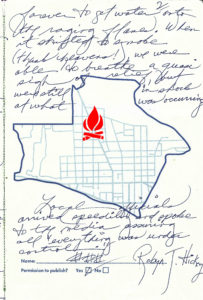 forever to get water onto
the raging flames. When
it started to smoke
(thank heavens), we were
able to breathe a quasi
sigh of relief, but
were still in shock
at what was occurring
Local officials
arrived speedily and spoke
to the media assuring
all everything was under
control.
Name:
Permission to publish? Yes No
Robyn Hickey